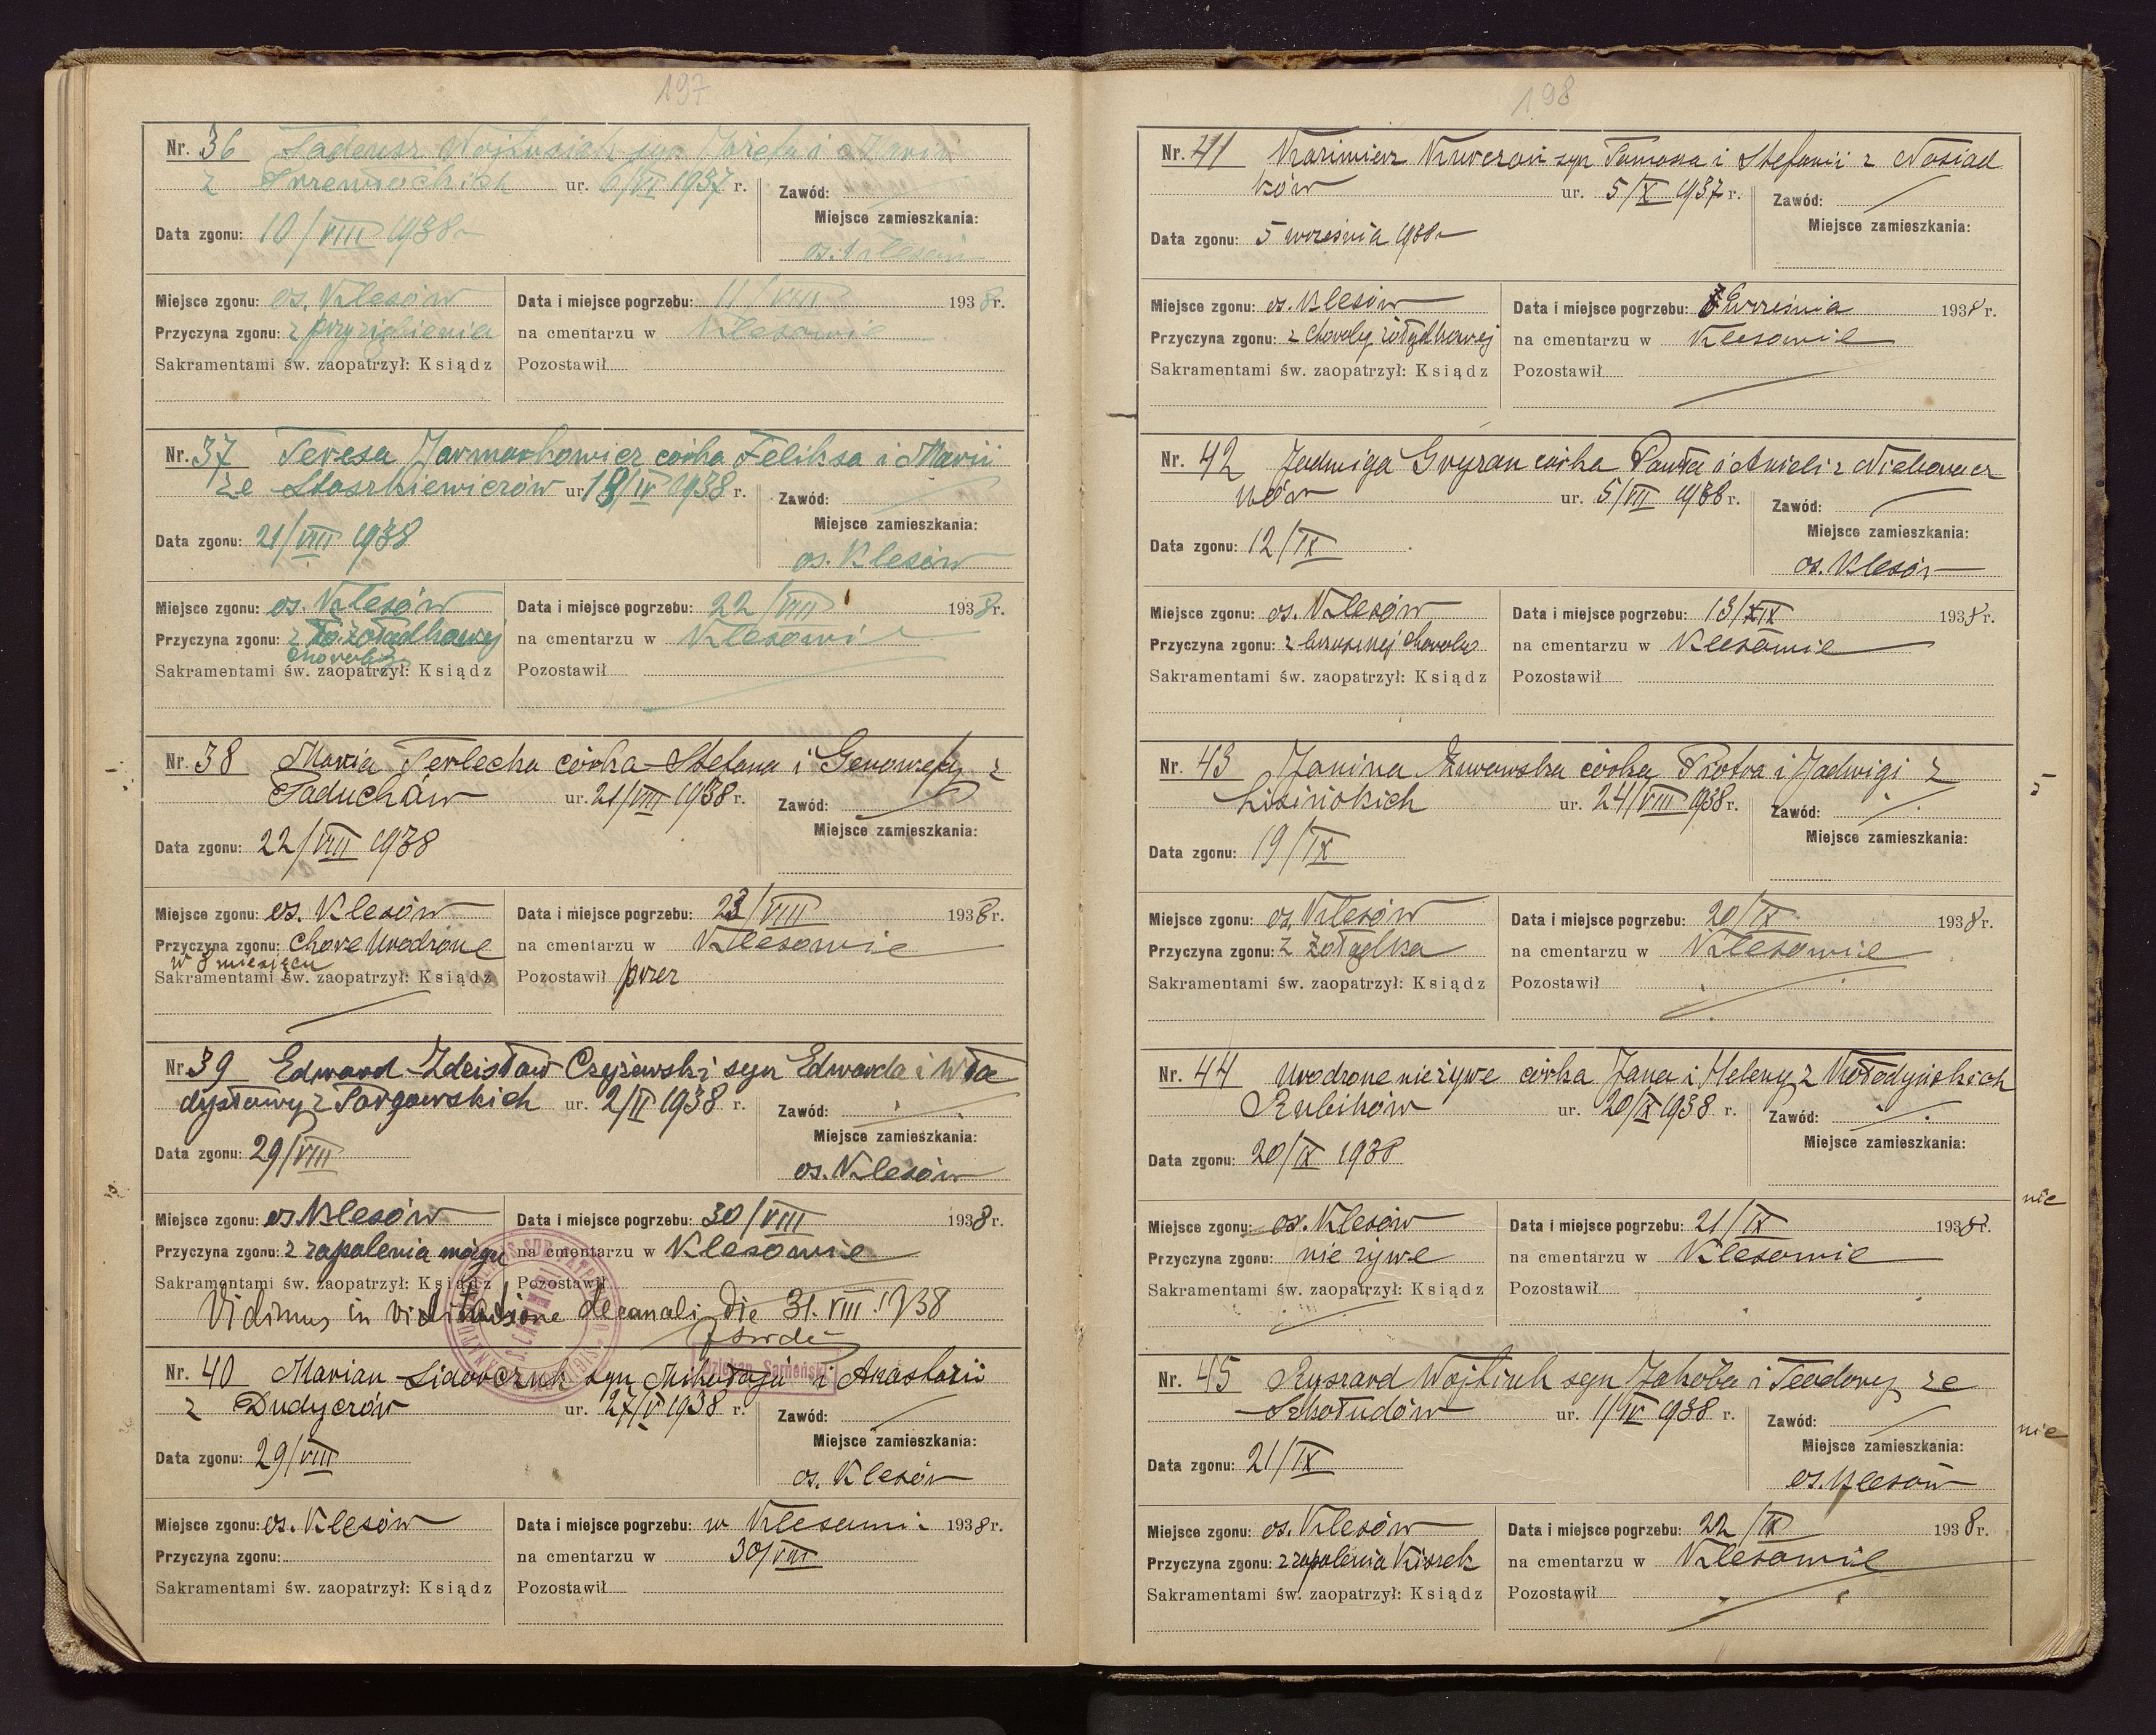 197
Nr. 36 Tadeusz Wojtusiak syn Józefa i Marii
z ur. 6/VI 1937 r. Zawód:
Miejsce zamieszkania:
Data zgonu: 10/VIII 1938 r
os. Klesów
Miejsce zgonu: os. Klesów Data i miejsce pogrzebu: 11/VIII 1938 r.
Przyczyna zgonu: z przeziębienia na cmentarzu w Klesowie
Sakramentami św. zaopatrzył: Ksiądz Pozostawił
Nr. 37 Teresa Jarmachowicz córka Feliksa i Marii
ze Staszkiewiczów ur. 18/IV 1938 r. Zawód:
Miejsce zamieszkania:
Data zgonu: 21/VIII 1938
os. Klesów
Miejsce zgonu: os. Klesów Data i miejsce pogrzebu: 22/VIII 1938 r.
Przyczyna zgonu: z żołądkowej na cmentarzu w Klesowie
choroby
Sakramentami św. zaopatrzył: Ksiądz Pozostawił
Nr. 38 Maria Terlecka córka Stefana i Genowefy z
Taduchów ur. 21/VIII 1938 r. Zawód:
Miejsce zamieszkania:
Data zgonu: 22/VIII 1938
Miejsce zgonu: os. Klesów Data i miejsce pogrzebu: 23/VIII 1938 r.
Przyczyna zgonu: chore urodzone na cmentarzu w Klesowie
w 8 miesięcu
Sakramentami św. zaopatrzył: Ksiądz Pozostawił przez
Nr. 39 Edward Zdzisław Czyżewski syn Edwarda i Wła
dysławy z Targowskich ur. 2/II 1938 r. Zawód:
Miejsce zamieszkania:
Data zgonu: 29/VIII
os. Klesów
Miejsce zgonu: os. Klesów Data i miejsce pogrzebu: 30/VIII 1938 r.
Przyczyna zgonu: z zapalenia mózgu na cmentarzu w Klesowie
Sakramentami św. zaopatrzył: Ksiądz Pozostawił
Vidimus in visitatione decanali die 31. VIII. 1938
Dziekan Sarneński
Nr. 40 Marian Sidorczuk syn Mikołaja i Anastazii
z Dudyczów ur. 27/V 1938 r. Zawód:
Miejsce zamieszkania:
Data zgonu: 29/VIII
os. Klesów
Miejsce zgonu: os. Klesów Data i miejsce pogrzebu: w Klesowie 1938 r.
Przyczyna zgonu: na cmentarzu w 30/VIII
Sakramentami św. zaopatrzył: Ksiądz Pozostawił
198
Nr. 41 Kazimierz Kuczoń syn Tomasza i Stefanii z Nosiad
ków ur. 5/X 1937 r. Zawód:
Miejsce zamieszkania:
Data zgonu: 5 września 1938 r
Miejsce zgonu: os. Klesów Data i miejsce pogrzebu: września 1938 r.
Przyczyna zgonu: z choroby żołądkowej na cmentarzu w Klesowie
Sakramentami św. zaopatrzył: Ksiądz Pozostawił
Nr. 42 Jadwiga Gryzan córka Pawła i Anieli z
ur. 5/VII 1938 r. Zawód:
Miejsce zamieszkania:
Data zgonu: 12/IX
os. Klesów
Miejsce zgonu: os. Klesów Data i miejsce pogrzebu: 13/IX 1938 r.
Przyczyna zgonu: z brzusznej choroby na cmentarzu w Klesowie
Sakramentami św. zaopatrzył: Ksiądz Pozostawił
Nr. 43 Janina Żurawska córka Piotra i Jadwigi z
Lisińskich ur. 24/VIII 1938 r. Zawód:
Miejsce zamieszkania:
Data zgonu: 19/IX
Miejsce zgonu: os. Klesów Data i miejsce pogrzebu: 20/IX 1938 r.
Przyczyna zgonu: z żołądka na cmentarzu w Klesowie
Sakramentami św. zaopatrzył: Ksiądz Pozostawił
Nr. 44 urodzone nieżywe córka Jana i Heleny z Kołodyńskich
Rubików ur. 20/IX 1938 r. Zawód:
Miejsce zamieszkania:
Data zgonu: 20/IX 1938
nie
Miejsce zgonu: os. Klesów Data i miejsce pogrzebu: 21/IX 1938 r.
Przyczyna zgonu: nie żywe na cmentarzu w Klesowie
Sakramentami św. zaopatrzył: Ksiądz Pozostawił
Nr. 45 Ryszard Wojtiuk syn Jakóba i Teodory ze
Szkołudów ur. 1/IV 1938 r. Zawód:
nie
Miejsce zamieszkania:
Data zgonu: 21/IX
os. Klesów
Miejsce zgonu: os. Klesów Data i miejsce pogrzebu: 22/IX 1938 r.
Przyczyna zgonu: z zapalenia kiszek na cmentarzu w Klesowie
Sakramentami św. zaopatrzył: Ksiądz Pozostawił